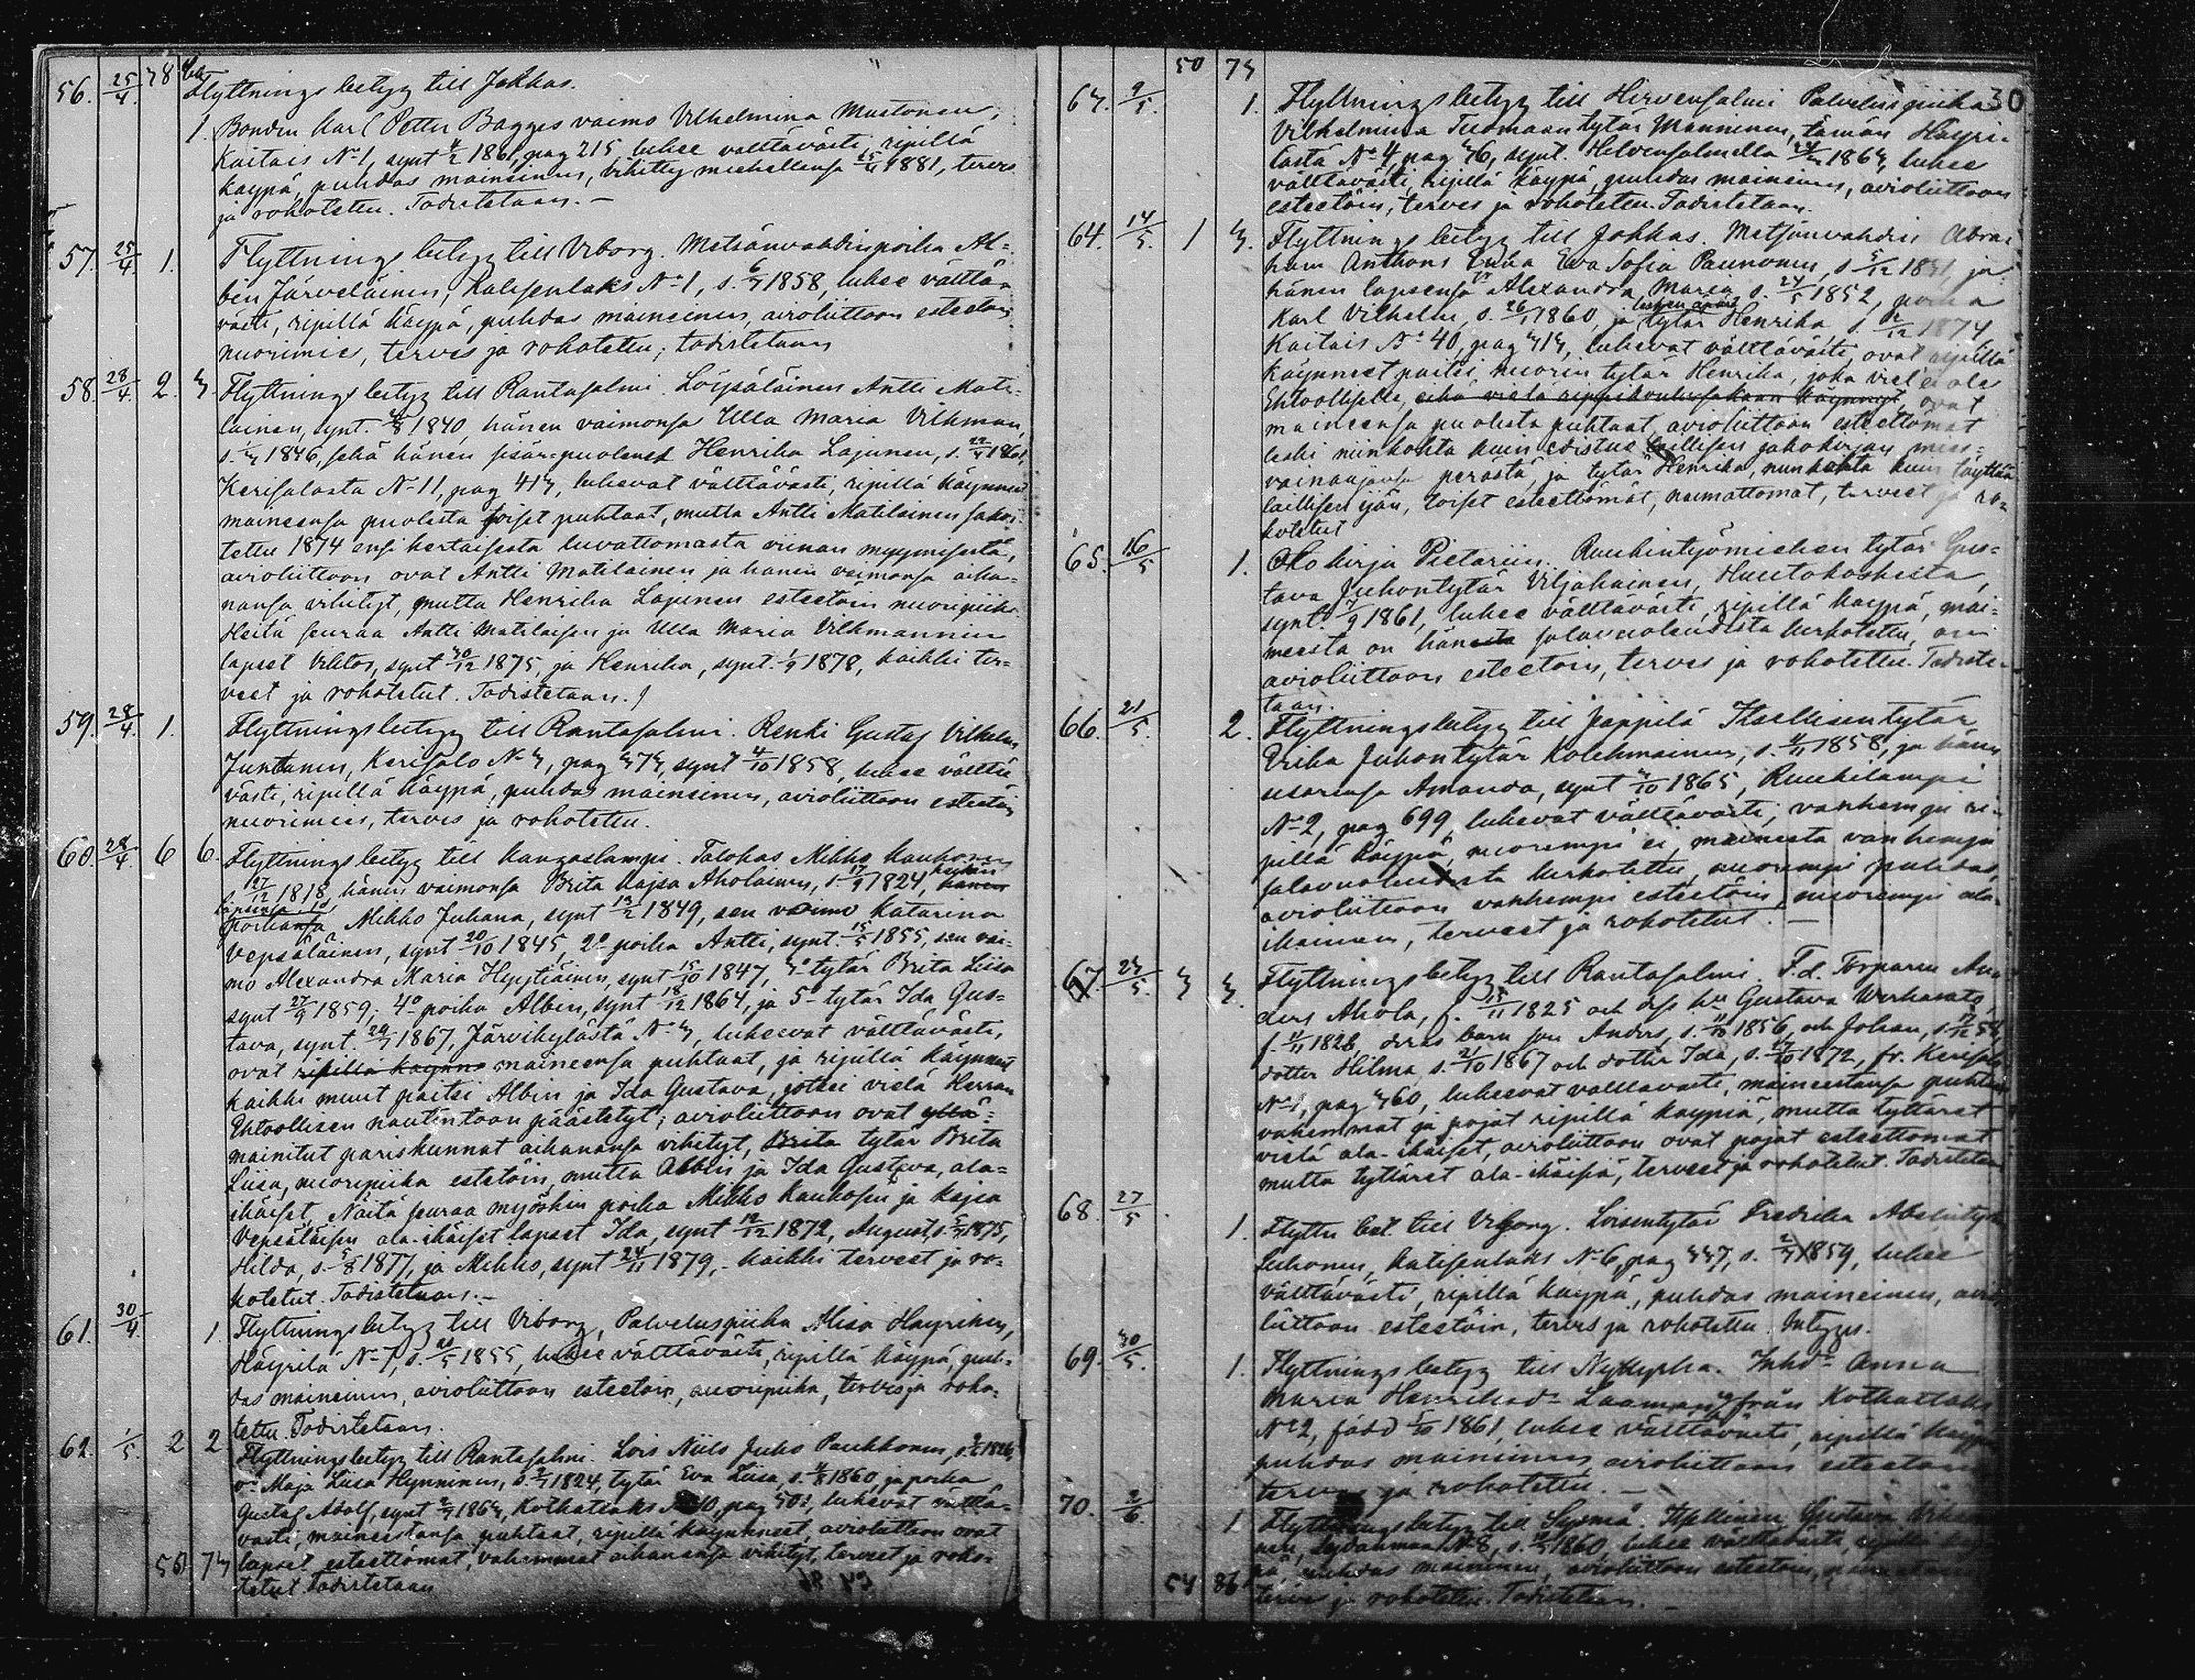 56. 25/4. Flyttningsbetyg till Jokkas.
1. Bonden Karl Petter Bagges vaimo Vilhelmina Mustonen,
Kaitais No 1, synt 186, pag 215 lukee välttävästi, ripillä
käypä, puhdas maineinen, vihitty miehellensä 1881, terve
ja rokotettu. Todistetaan.
57. 25/4 1. Flyttningsbetyg till Viborg. Metsänvahdinpoika Al-
bin Järveläinen, No 1, s. 1858, lukee välttä-
västi, ripillä käypä, puhdas maineinen, avioliittoon esteetön
nuorimies, terve ja rokotettu; todistetaan
58. 28/4. 2. 3. Flyttningsbetyg till Rantasalmi. Antti Mati-
lainen, synt. 1840, hänen vaimonsa Ulla Maria Vilkman,
s. 1846, sekä hänen sisär-puolensa Henrika Lajunen, s.
Kerisalosta No 11, pag 413, lukevat välttävästi, ripillä käyneet
maineensa puolesta toiset puhtaat, mutta Antti Matilainen sakoi-
tettu 1874 ensikertaisesta luvattomasta viinan myymisestä,
avioliittoon ovat Antti Matilainen ja hänen vaimonsa aika-
nansa vihityt, mutta Henrika Lajunen esteetöin nuoripiika
Heitä seuraa Antti Matilaisen ja Ulla Maria Vilkmannin
lapset Viktor, synt 30/12 1875, ja Henrika, synt. 1/9 1878, kaikki ter-
veet ja rokotetut. Todistetaan.
59. 28/4. 1. Flyttningsbetyg till Rantasalmi. Renki Gustaf Vilhelm
Juntunen, Kerisalo No 3, pag 373, synt 4/10 1858, lukee välttä
västi, ripillä käypä, puhdas maineinen, avioliittoon esteetöin
nuorimies, terve ja rokotettu.
60. 28/4 6 6. Flyttningsbetyg till Kangaslampi. Talokas Mikko Kaukonen
s. 27/12 1818, hänen vaimonsa Brita Kajsa Aholainen, s. 17/9 1824, heidän hänen
lapsensa 1o poikansa Mikko Juhana, synt 13/2 1849, sen vaimo Katarina
Vepsäläinen, synt 20/10 1845, 2o poika Antti, synt. 15/5 1855, sen vai-
mo Alexandra Maria Hyytiäinen, synt 15/10 1847, 3o tytär Brita Liisa
synt 27/9 1859, 4o poika Albin, synt 18/12 1864, ja 5o tytär Ida Gus-
tava, synt. 1867, Järvikylästä No 3, lukeevat välttävästi,
ovat ripillä käynne maineensa puhtaat, ja ripillä käyneet
kaikki muut paitsi Albin ja Ida Gustava, jotkei vielä Herran
Ehtoollisen nautintoon päästetyt; avioliittoon ovat yllä-
mainitut pariskunnat aikanansa vihityt, Brita tytär Brita
Liisa, nuoripiika estetöin, mutta Albin ja Ida Gustava, ala-
ikäiset. Näitä seuraa myöskin poika Mikko Kaukosen ja Kajsa
Vepsäläisen ala-ikäiset lapset Ida, synt 12/12 1872, August, s. 1875,
Hilda, s. 5/8 1877, ja Mikko, synt 24/11 1879, - kaikki terveet ja ro-
kotetut. Todistetaan.
61. 30/4. 1. Flyttningsbetyg till Viborg, Palveluspiika Alisa Häyrinen,
Häyrilä No 7, s. 1855, lukee välttävästi, ripillä käypä, puh-
das maineinen, avioliittoon esteetöin, nuoripiika, terve ja roko-
tettu. Todistetaan.
62. 1/5 2 2 Flyttningsbetyg till Rantasalmi. Lois Niilo Juho Paukkonen,
vo Maja Liisa Hynninen, s. 1824, tytär Eva Liisa, s. 1860, ja poika
Gustaf Adolf, synt 1863, Kolkatlaks No 10, pag 501, lukevat välttä-
västi, maineestansa puhtaat, ripillä käynneet, avioliittoon ovat
50 73 lapset esteettömät, vahemmat aikanansa vihityt, terveet ja roko-
tetut. Todistetaan
50 73
30
63. 9/5. 1. Flyttningsbetyg till Hirvensalmi Palveluspiika
Vilhelmina Tuomaantytär Manninen, tämän Häyri-
lästä No 4, pag 36, synt. Hirvensalmella 1863, lukee
välttävästi, ripillä käypä, puhdas maineinen, avioliittoon
esteetöin, terve ja rokotettu. Todistetaan.
64. 14/5. 1 3. Flyttningsbetyg till Jokkas. Metsänvahdin Abra-
ham Anthons Enka Eva Sofia Paunonen, s. 1831, ja
hänen lapsensa Alexandra Maria s. 24/5 1852, poika
Karl Vilhelm, s. 26/1 1860, ja tytär Henrika, s. 2/12 1874,
Kaitais No 40, pag 313, lukevat välttävästi, ovat ripillä
käynneet paitsi nuorin tytär Henrika, joka viel' ei ole
Ehtoollisella, eikä vielä rippikoulussakaan käynnyt, ovat
maineensa puolesta puhtaat, avioliittoon esteettömät
leski niinkohta kuin edistuu laillisen jakokirjan mies-
vainaajansa perästä, ja tytär Henrika, niinkohta kuin täyttää
laillisen ijän, toiset esteettömät, naimattomat, terveet ja ro-
kotetut
65. 16/5 1. Okokirja Pietariin. Ruukintyömiehen tytär Gus-
tava Juhontytär Viljakainen, Huutokoskesta,
synt. 7/9 1861, lukee välttävästi, ripillä käypä, mai-
neesta on häneitä salavuoteudesta nuhdeltu, on
avioliittoon esteetöin, terve ja rokotettu. Todiste-
taan.
66. 21/5. 2. Flyttningsbetyg till Jäppilä Itsellisentytär
Ulrika Juhontytär Kolehmainen, s. 4/11 1858, ja hänen
sisarensa Amanda, synt 1865, Ruukilampi
No 2, pag 699, lukevat välttävästi, vanhempi ri-
pillä käypä, nuorempi ei, maineesta vanhempi
salavuoteudesta nuhdeltu, nuorempi puhdas,
avioliittoon vanhempi esteetöin, nuorempi ala-
ikäinen, terveet ja rokotetut.
67. 23/5. 3 3. Flyttningsbetyg till Rantasalmi. F.d. Torparen An-
ders Ahola, f. 15/11 1825 och dess hu Gustava Werkasalo,
f. 1828, deras barn son Anders, s. 1856, och Johan, s.
dotter Hilma, s. 21/10 1867 och dotter Ida, s. 1872, fr. Kerisalo
No 1, pag 360, lukeevat välttävästi, maineestansa puhtaat
vahemmat ja pojat ripillä käypiä, mutta tyttäret
vielä ala-ikäiset, avioliittoon ovat pojat esteettömät
mutta tyttäret ala-ikäisiä, terveet ja rokotetut. Todistetaan
68. 27/5 1. Flyttn bet. till Viborg. Loisentytär Fredrika
Luhonen, No 6, pag 337, s. 1859, lukee
välttävästi, ripillä käypä, puhdas maineinen, avio
liittoon esteetöin, terve ja rokotettu. Intygas.
69. 30/5. 1. Flyttningsbetyg till Nykyrka. Inhda Anna
Maria Henriksdr Laamanen från Kolkatlaks
No 2, född 1861, lukee välttävästi, ripillä käypä
puhdas maineinen, avioliittoon esteetöin
terve ja rokotettu.
70. 2/6 1 Flyttningsbetyg till Itsellinen Gustava
No 8, s. 1860, lukee välttävästi, ripillä
puhdas maineinen, avioliittoon esteetöin,
54 86 terve ja rokotettu. Todistetaan.